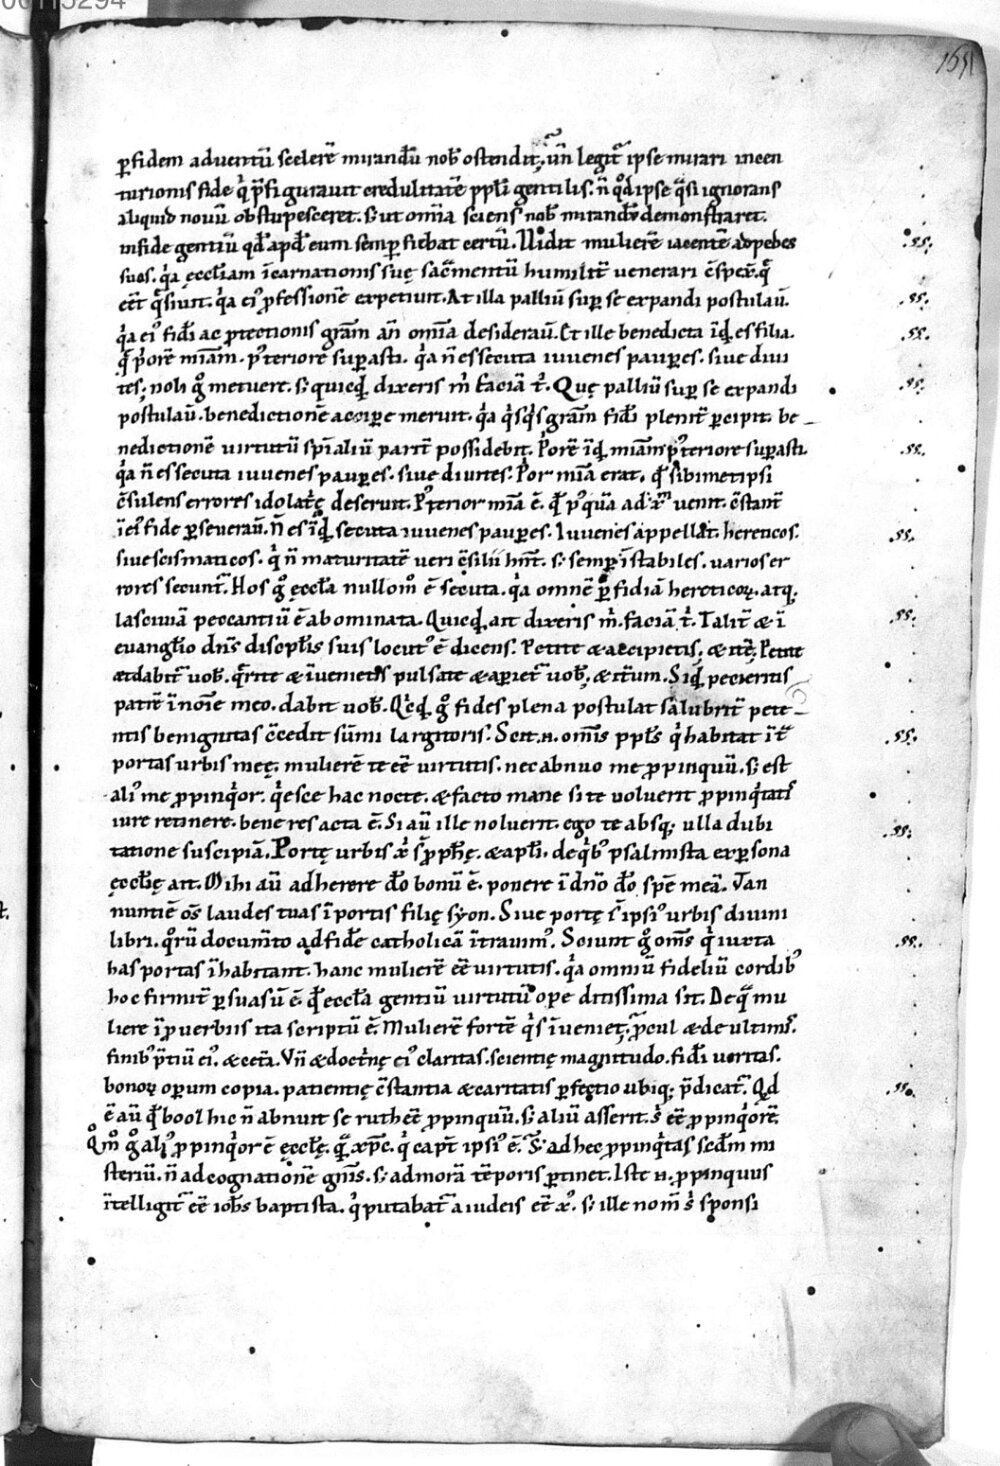 00115294
165
ꝑfidem aduentū sceler̄ mirandū nob̄ ostendit, uñ legit̄ ipse mirari in cen
turionis fide q̇ p̄figurauit credulitatē ppl̄i gentilis. n̄ qđ ipse q̄si ignorans
aliquid nouū obstupesceret. s; ut om̄ia sciens nob̄ mirandū demonstraret.
in fide gentiū qđ apđ eum semꝑ fiebat certū. Vidit mulierē iacentē ad pedes
suos. q̇a ęccl̄iam īcarnationis suę sac̄mentū humilit̄ uenerari ꝯspex̄. q̄
eēt q̄siuit. q̇a eiꝰ ꝓfessionē expetiuit. At illa palliū suꝑ se expandi postulau̅.
q̇a eiꝰ fidī ac ꝓtectionis gr̄am añ om̄ia desiderau̅. Et ille benedicta īq̄d es filia.
q̄ p̄orē mīam. pꝰteriorē suꝑasti. q̇a n̄ es secuta iuuenes pauꝑes. siue diui
tes; noli g̊ metuere. s; quicq̄d dixeris m̄ faciā t̄. Quę palliū suꝑ se expandi
postulau̅. benedictionē acciꝑe meruit. q̇a q̇sq̇s gr̄am fidī plenit̄ ꝑcipit. be
nedictionē uirtutū spīaliū parit̄ possidebit. P̄orē īq̄d mīam pꝰteriore suꝑasti.
q̇a n̄ es secuta iuuenes pauꝑes. siue diuites. P̄or mīa erat. q̄ sibimetipsi
ꝯsulens errores idolatrię deseruit. Pꝰterior mīa ē. q̄ pꝰquā ad xp̄m uenit. ꝯstant̄
ī eiꝰ fide ꝑseuerau̅. N̄ es īq̄d secuta iuuenes pauꝑes. Iuuenes appellat hereticos.
siue scismaticos. q̇ n̄ maturitatē ueri ꝯsilii hn̄t. s; semꝑ īstabiles. uarios er
rores secunt̄. Hos g̊ ęccl̄a nullom̊ ē secuta. q̇a omnē ꝑfidiā hereticoꝝ. atq;
lasciuiā peccantiū ē abominata. Quicq̄d ait dixeris m̄. faciā t̄. Talit̄ & ī
euangl̄io dn̄s discipl̄is suis locutꝰ ē dicens. Petite & accipietis. & itē; Petite
& dabit̄ uob̄. q̄rite & īuenietis pulsate & aꝑiet̄ uob̄; & itm̄. Siq̄d petieritis
patrē ī noīe meo. dabit uob̄. Q̇cq̄d g̊ fides plena postulat salubrit̄ pete
ntis benignitas ꝯcedit sūmi largitoris. Scit .n. om̄is ppl̄s q̇ habitat īt̄
portas urbis meę; mulierē te eē uirtutis. nec abnuo me ꝓpinquū. s; est
aliꝰ me ꝓpinq̇or. q̇esce hac nocte. & facto mane si te uoluerit ꝓpinq̇tatis
iure retinere. bene res acta ē. Si aū ille noluerit. ego te absq; ulla dubi
tatione suscipiā. Portę urbis xp̄i s̄ ꝓph̄ę. & apl̄i. de q̇bꝰ psalmista ex ꝑsona
ęccl̄ię ait. Mihi aū adherere dō bonū ē. ponere ī dn̄o dō spē meā. Vt an
nuntiē oēs laudes tuas ī portis filię syon. Siue portę s̄ ipsiꝰ urbis diuini
libri. q̊rū docum̄to ad fidē catholicā ītrauimꝰ. Sciunt g̊ om̄s q̇ iuxta
has portas īhabitant. hanc mulierē eē uirtutis. q̇a omniū fideliū cordibꝰ
hoc firmit̄ ꝑsuasū ē. q̄d ęccl̄a gentiū uirtutū ope ditissima sit. De q̄ mu
liere ī ꝓuerbiis ita scriptū ē. Mulierē fortē q̇s īueniet; ꝓcul & de ultimis
finibꝰ p̄tiū eiꝰ. & cet̄a. Vn̄ & doctrinę eiꝰ claritas. scientię magnitudo. fidī ueritas.
bonoꝝ oꝑum copia. patientię ꝯstantia & caritatis ꝑfectio ubiq; p̄dicat̄. Qđ
ē aū q̄d booz hic n̄ abnuit se ruth eē ꝓpinquū. s; aliū asserit. s; eē ꝓpinq̇orē.
Q̊m̊ g̊ aliꝰ ꝓpinq̇or ē ęccl̄ę. q̄ xp̄c. q̇ capt̄ ipsiꝰ ē. S; ad hec ꝓpinq̇tas secđm mi
steriū. n̄ ad cognationē gn̄is. s; ad morā tēporis ꝑtinet. Iste .n. ꝓpinquus
ītelligit̄ eē ioh̄s baptista. q̇ putabat̄ a iudeis eē xp̄c. s; ille non s̄ sponsi